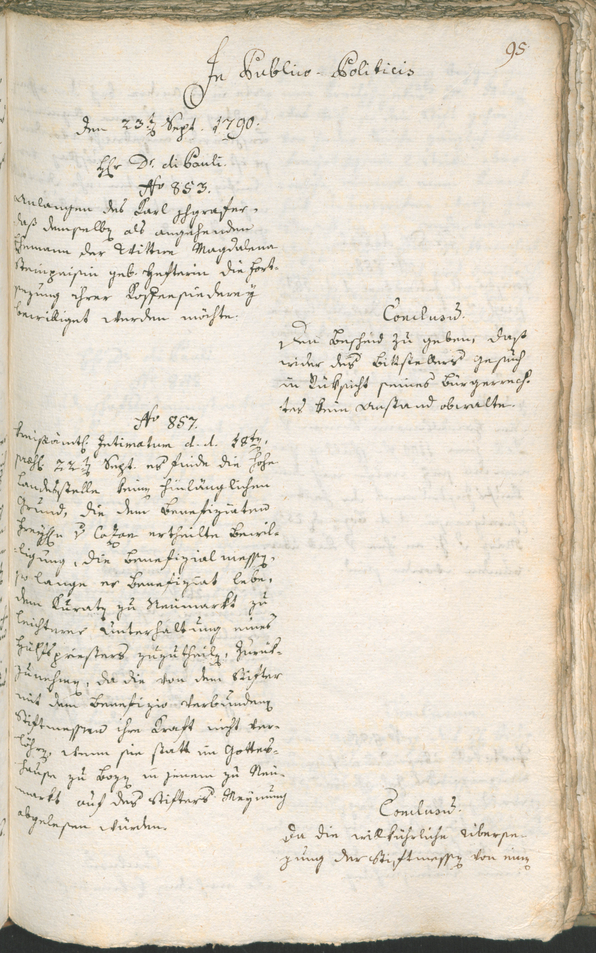 95
In Publico-Politicis
den 23t. Sept. 1790.
Hr Dr. di Pauli.
No 853.
Anlangen des Karl
daß demselben als angehenden
Ehemann der Wittwe Magdalena
geb. Hefterin die Fort-
sezung ihrer
bewilliget werden möchte.
Conclusum.
Den Bescheid zu geben, daß
wider des Bittstellers Gesuch
in Rüksicht seines Bürgerrech-
tes kein Anstand obwalte.
No 857.
Kreisämtl. Intimatum d. d. 18ten,
22t. Sept. es finde die hohe
Landesstelle keinen hinlänglichen
Grund, die dem Benefiziaten
ertheilte Bewil-
ligung, die Benefizialmessen,
so lange er Benefiziat lebe,
dem Kuraten zu Neumarkt zu
leichterer Unterhaltung eines
Hülfspriesters zuzutheilen, zurük-
zunehmen, da die von dem Stifter
mit dem Benefizio verbundenen
Stiftmessen ihre Kraft nicht ver-
löhren, wenn sie statt im Gottes-
hause zu Bozen in jenem zu Neu-
markt auf des Stifters Meynung
abgelesen würden.
Conclusum.
Da die willkührliche Überse-
zung der Stiftmessen von einem